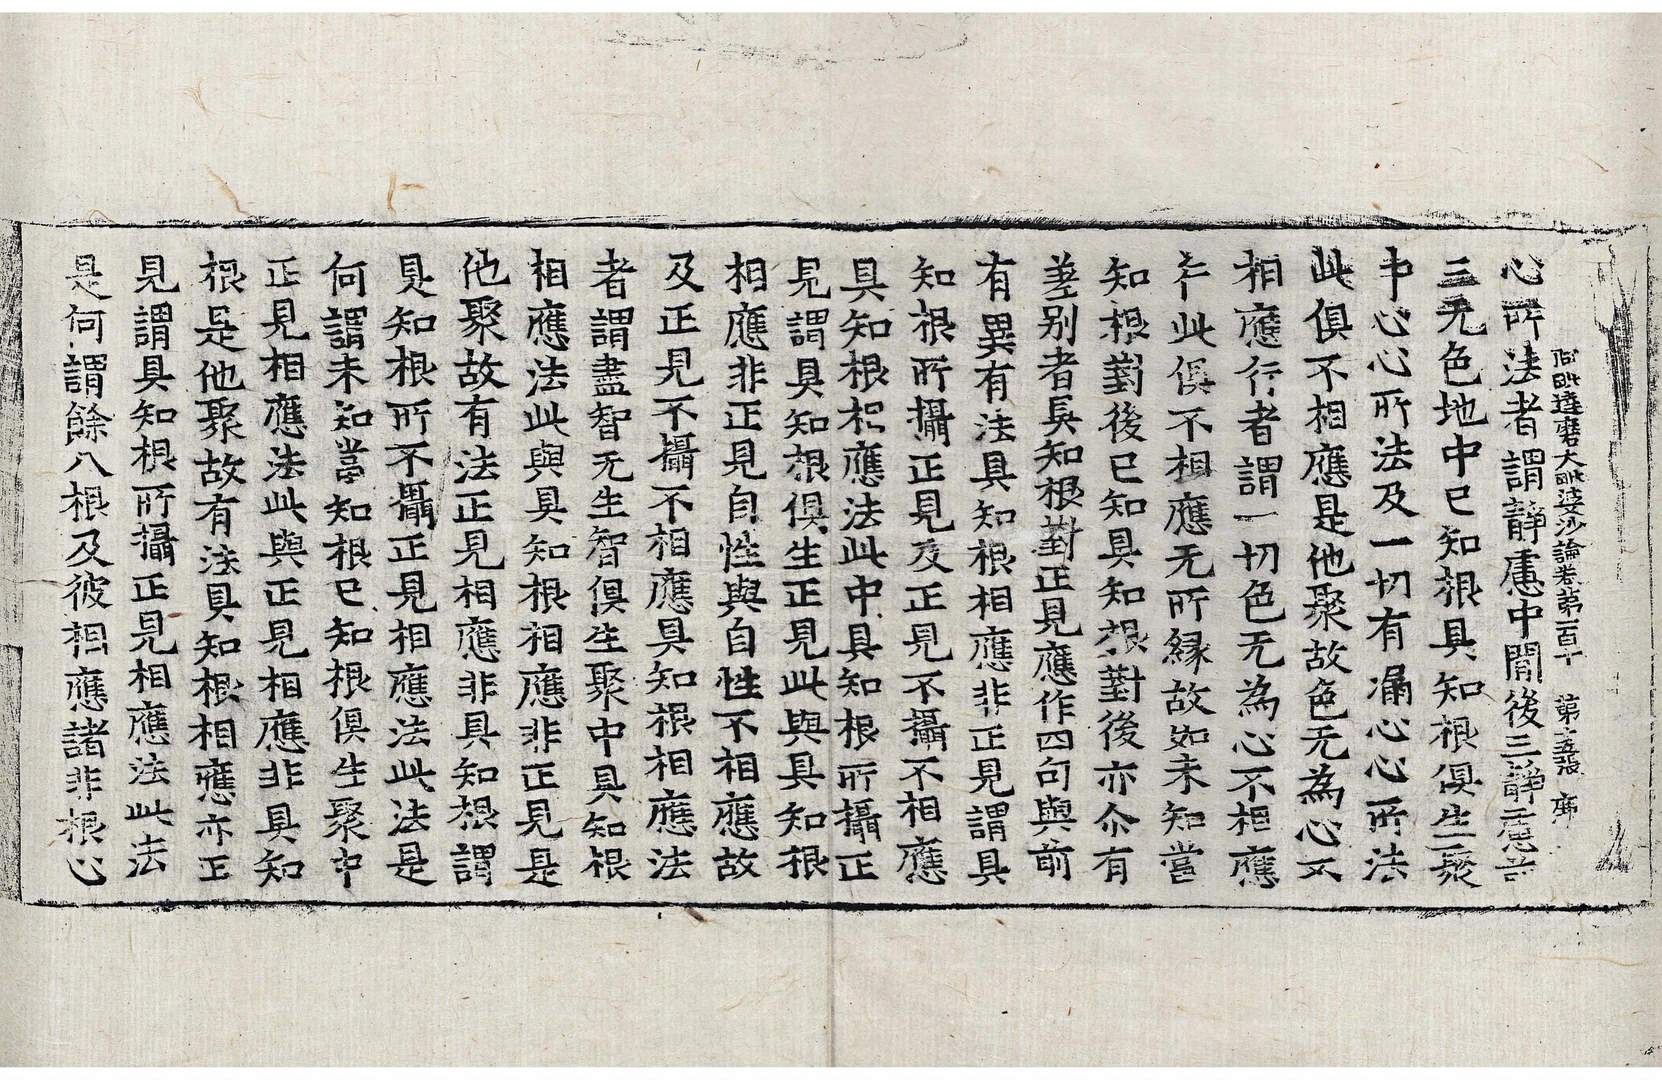 阿毗達磨大毗婆沙論卷第一百十 第十五張 廉
心所法者謂靜慮中閒後三靜慮前
三无色地中已知根具知根俱生聚
中心心所法及一切有漏心心所法
此俱不相應是他聚故色无為心不
相應行者謂一切色无為心不相應
行此俱不相應无所緣故如未知當
知根對後已知具知根對後亦尒有
差別者具知根對正見應作四句與前
有異有法具知根相應非正見謂具
知根所攝正見及正見不攝不相應
具知根相應法此中具知根所攝正
見謂具知根俱生正見此與具知根
相應非正見自性與自性不相應故
及正見不攝不相應具知根相應法
者謂盡智无生智俱生聚中具知根
相應法此與具知根相應非正見是
他聚故有法正見相應非具知根謂
具知根所不攝正見相應法此法是
何謂未知當知根已知根俱生聚中
正見相應法此與正見相應非具知
根是他聚故有法具知根相應亦正
見謂具知根所攝正見相應法此法
是何謂餘八根及彼相應諸非根心